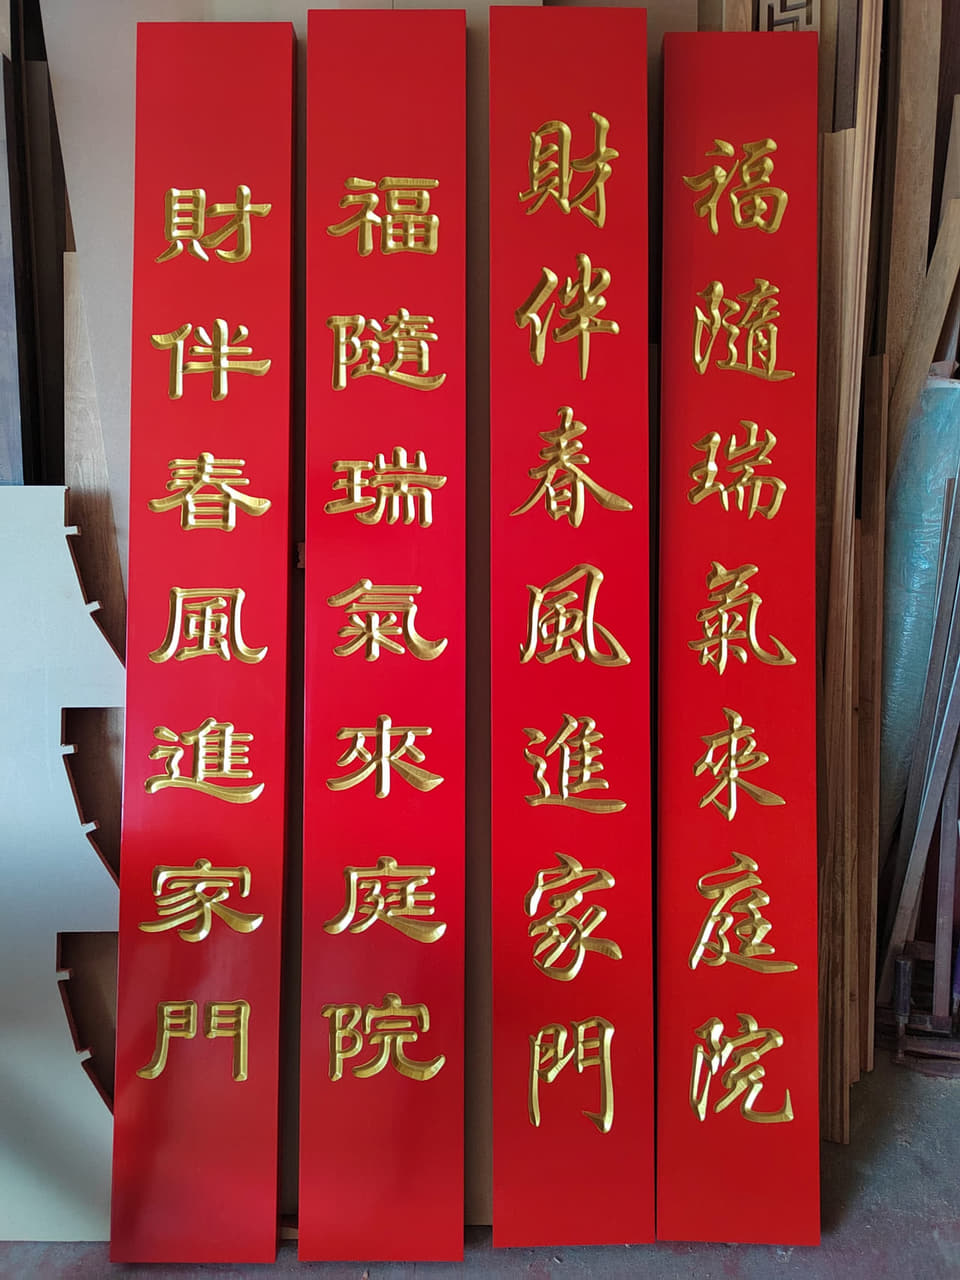 福隨瑞氣來庭院
財伴春風進家門
福隨瑞氣來庭院
財伴春風進家門